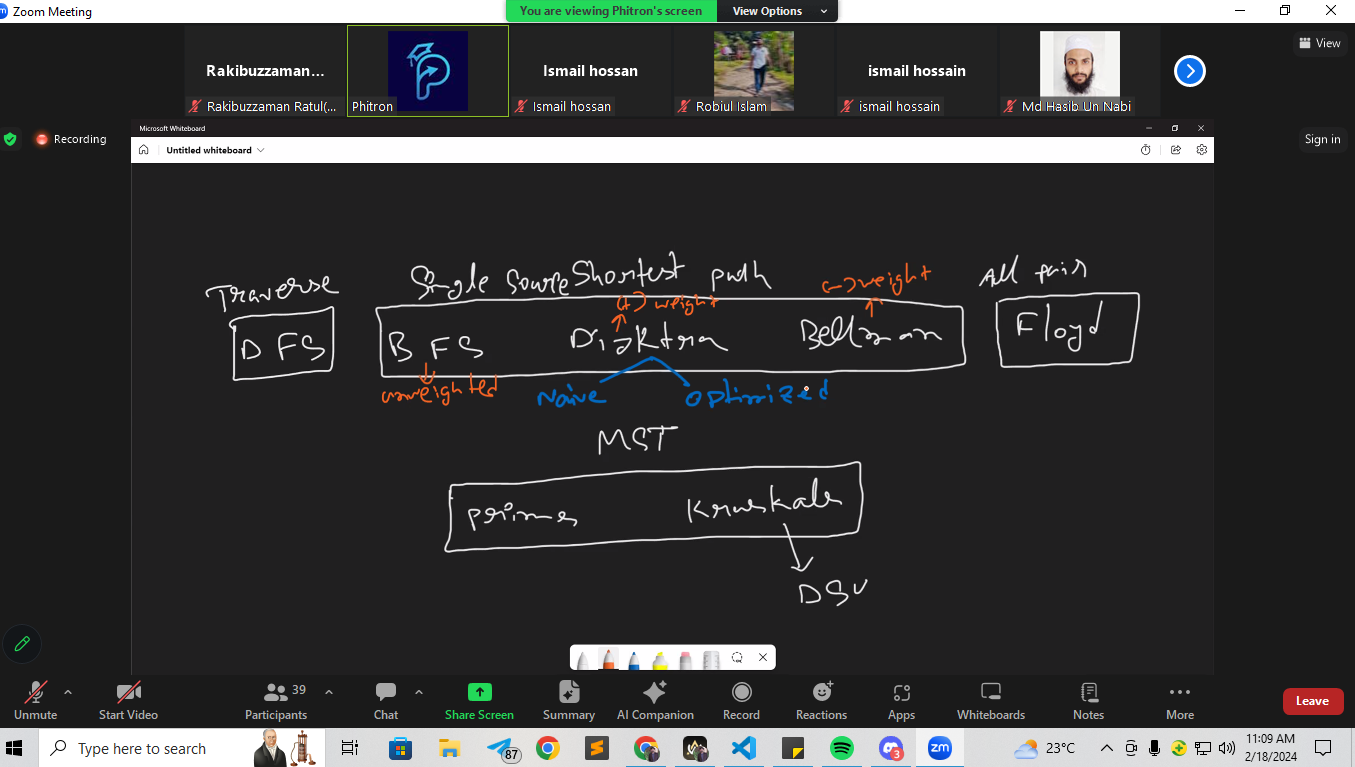 Zoom Meeting
You are viewing Phitron's screen
View Options
View
Rakibuzzaman...
Rakibuzzaman Ratul(...
Phitron
Ismail hossan
Ismail hossan
Robiul Islam
ismail hossain
ismail hossain
Md Hasib Un Nabi
Recording
Sign in
Microsoft Whiteboard
Untitled whiteboard
Traverse
Single Source Shortest path
All pair
(+) weight
(-) weight
DFS
BFS
Dijktra
Bellman
Floyd
unweighted
Naive
Optimized
MST
primes
Kruskals
DSU
Unmute
Start Video
Participants
39
Chat
Share Screen
Summary
AI Companion
Record
Reactions
Apps
Whiteboards
Notes
More
Leave
Type here to search
87
3
zm
23°C
11:09 AM
2/18/2024